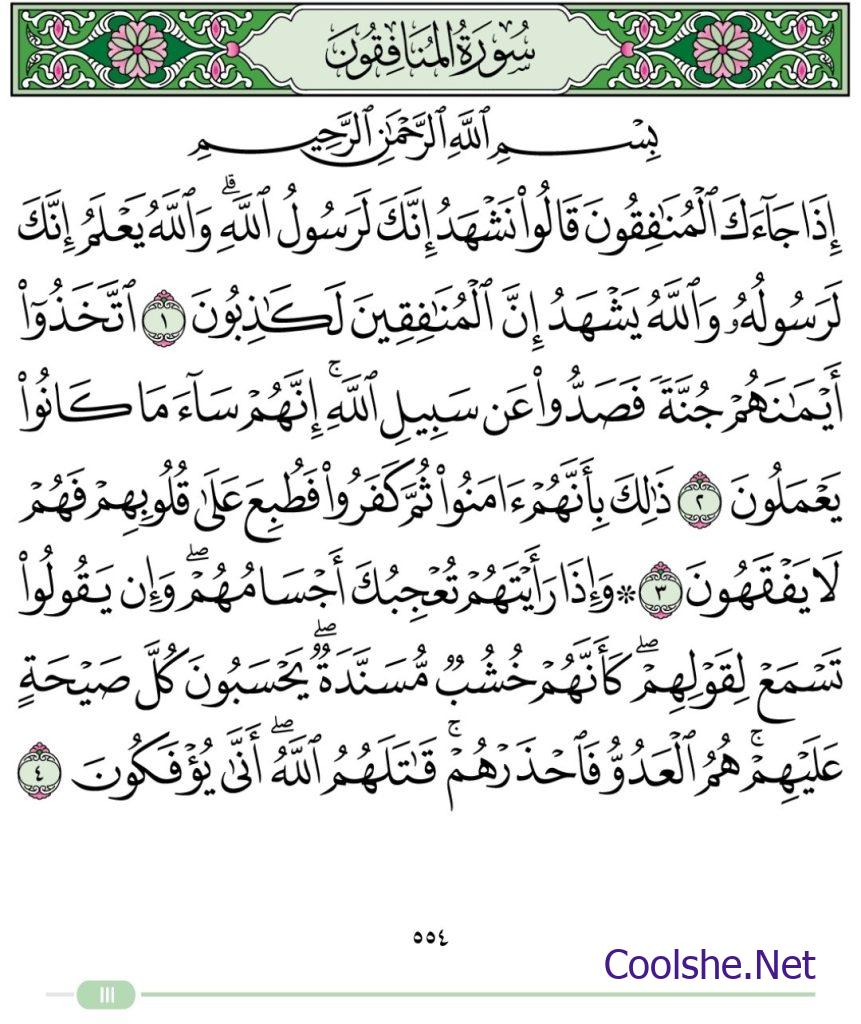 سُورَةُ الْمُنَافِقُونَ
بِسْمِ ٱللَّهِ ٱلرَّحْمَٰنِ ٱلرَّحِيمِ
إِذَا جَآءَكَ ٱلْمُنَٰفِقُونَ قَالُوا۟ نَشْهَدُ إِنَّكَ لَرَسُولُ ٱللَّهِ ۗ وَٱللَّهُ يَعْلَمُ إِنَّكَ
لَرَسُولُهُۥ وَٱللَّهُ يَشْهَدُ إِنَّ ٱلْمُنَٰفِقِينَ لَكَٰذِبُونَ ١ ٱتَّخَذُوٓا۟
أَيْمَٰنَهُمْ جُنَّةً فَصَدُّوا۟ عَن سَبِيلِ ٱللَّهِ ۚ إِنَّهُمْ سَآءَ مَا كَانُوا۟
يَعْمَلُونَ ٢ ذَٰلِكَ بِأَنَّهُمْ ءَامَنُوا۟ ثُمَّ كَفَرُوا۟ فَطُبِعَ عَلَىٰ قُلُوبِهِمْ فَهُمْ
لَا يَفْقَهُونَ ٣ * وَإِذَا رَأَيْتَهُمْ تُعْجِبُكَ أَجْسَامُهُمْ ۖ وَإِن يَقُولُوا۟
تَسْمَعْ لِقَوْلِهِمْ ۖ كَأَنَّهُمْ خُشُبٌ مُّسَنَّدَةٌ ۖ يَحْسَبُونَ كُلَّ صَيْحَةٍ
عَلَيْهِمْ ۚ هُمُ ٱلْعَدُوُّ فَٱحْذَرْهُمْ ۚ قَٰتَلَهُمُ ٱللَّهُ ۖ أَنَّىٰ يُؤْفَكُونَ ٤
٥٥٤
Coolshe.Net